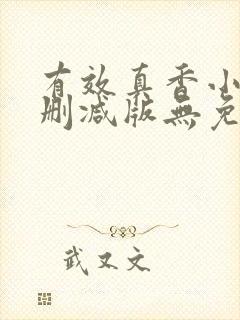 有效真香小
删减版無免
武又文